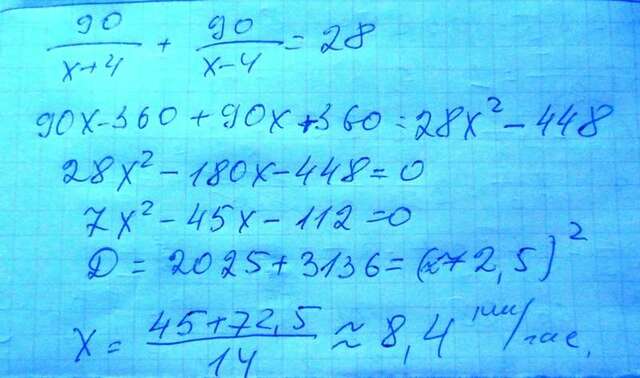 90/(x+4) + 90/(x-4) = 28
90x-360+90x+360=28x²-448
28x²-180x-448=0
7x²-45x-112=0
D=2025+3136=(72,5)²
x=(45+72,5)/14≈8,4 км/час.